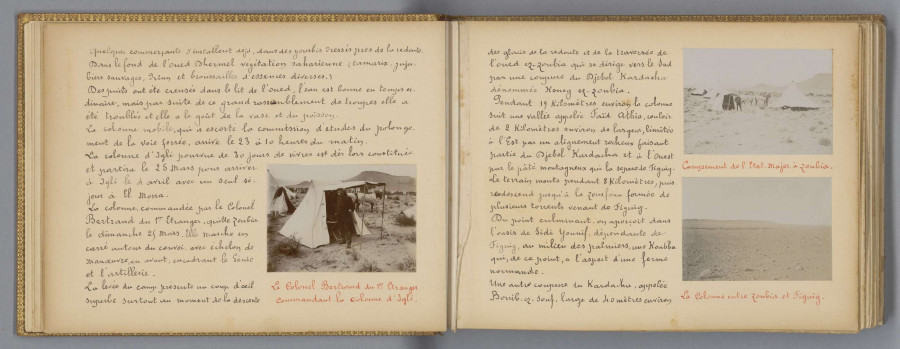 Quelques commerçants s'installent déjà, dans des gourbis dressés près de la redoute.
Dans le fond de l'oued Dhermel végétation saharienne (tamaris, juju-
biers sauvages, et broussailles d'essences diverses.)
Des puits ont été creusés dans le lit de l'oued, l'eau est bonne en temps or-
dinaire, mais par suite de ce grand rassemblement de troupes elle a
été troublée et elle a le goût de la vase et du poisson.
La colonne mobile, qui a escorté la commission d'études du prolonge-
ment de la voie ferrée, arrive le 23 à 10 heures du matin.
La colonne d'Igli pourvue de 30 jours de vivres est dès lors constituée
et partira le 25 Mars pour arriver
à Igli le 4 avril avec un seul sé-
jour à El Morra.
La colonne, commandée par le Colonel
Bertrand du 1er Etranger, quitte Zoubia
le dimanche 25 Mars. Elle marche en
carré autour du convoi avec échelon de
manœuvre, en avant, encadrant le Génie
et l'artillerie.
La levée du camp présente un coup d'œil
superbe surtout au moment de la descente
Le Colonel Bertrand du 1er Etranger
commandant la Colonne d'Igli.
des glacis de la redoute et de la traversée de
l'oued ez-Zoubia qui se dirige vers le Sud
par une coupure du Djebel Kardacha
dénommée Keneg ez-zoubia.
Pendant 19 Kilomètres environ la colonne
suit une vallée appelée Faïd Athia, couloir
de 2 Kilomètres environ de largeur, limitée
à l'Est par un alignement rocheux faisant
partie du Djebel Kardacha et à l'Ouest
par le pâté montagneux qui la sépare de Figuig.
Le terrain monte pendant 8 Kilomètres, puis
redescend jusqu'à la Zousfana formée de
plusieurs torrents venant de Figuig.
Du point culminant, on aperçoit dans
l'oasis de Sidi Youssif, dépendante de
Figuig, au milieu des palmiers, une Koubba
qui, de ce point, a l'aspect d'une ferme
normande.
Une autre coupure du Kardacha, appelée
large de 40 mètres environ
Campement de l'Etat-Major à Zoubia.
La Colonne entre Zoubia et Figuig.